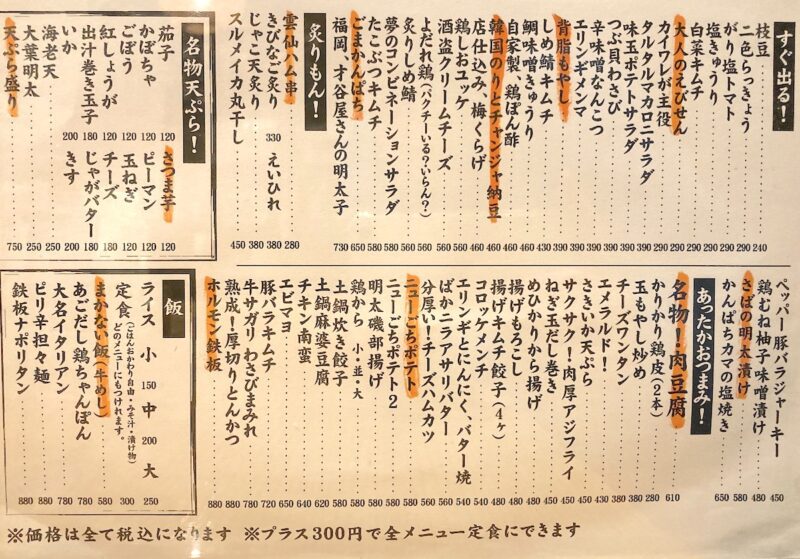 すぐ出る！
枝豆 240
二色らっきょう 290
がり塩トマト 290
塩きゅうり 290
白菜キムチ 290
大人のえびせん 290
カイワレが主役 390
タルタルマカロニサラダ 390
味玉ポテトサラダ 390
つぶ貝わさび 390
辛味噌なんこつ 390
エリンギメンマ 390
背脂もやし 390
しめ鯖キムチ 430
鯛味噌きゅうり 460
自家製、鶏ぽん酢 460
韓国のりとチャンジャ納豆 460
店仕込み、梅くらげ 460
鶏しおユッケ 560
酒盗クリームチーズ 560
よだれ鶏(パクチーいる？いらん？) 560
炙りしめ鯖 580
夢のコンビネーションサラダ 580
たこぶつキムチ 580
ごまかんぱち 650
福岡、才谷屋さんの明太子 730
炙りもん！
雲仙ハム串 280
きびなご炙り 330 えいひれ 380
じゃこ天炙り 380
スルメイカ丸干し 450
名物天ぷら！
茄子 120 さつま芋 120
かぼちゃ 120 ピーマン 120
ごぼう 120 玉ねぎ 120
紅しょうが 120 チーズ 120
出汁巻き玉子 180 じゃがバター 180
いか 200 きす 200
海老天 250
大葉明太 250
天ぷら盛り 750
ペッパー豚バラジャーキー 450
鶏むね柚子味噌漬け 480
さばの明太漬け 580
かんぱちカマの塩焼き 650
あったかおつまみ！
名物！肉豆腐 610
かりかり鶏皮(2本) 280
玉もやし炒め 380
チーズワンタン 380
エメラルド！ 430
さきいか天ぷら 450
サクサク！肉厚アジフライ 450
ねぎ玉だし巻き 450
めひかりから揚げ 480
揚げもろこし 480
揚げキムチ餃子(4ヶ) 480
コロッケメンチ 480
エリンギとにんにく、バター焼 540
ばかニラアサリバター 540
分厚い！チーズハムカツ 560
ニューごちポテト 580
ニューごちポテト2 580
明太磯部揚げ 580
鶏から 小・並・大 580
土鍋炊き餃子 580
土鍋麻婆豆腐 620
チキン南蛮 640
エビマヨ 650
豚バラキムチ 720
牛サガリわさびまみれ 780
熟成！厚切りとんかつ 880
ホルモン鉄板 880
飯
ライス 小 150 中 200 大 250
定食(ごはんおかわり自由・みそ汁・漬け物) どのメニューにもつけれます。 300
まかない飯(牛めし) 580
あごだし鶏ちゃんぽん 780
大名イタリアン 780
ピリ辛担々麺 880
鉄板ナポリタン 880
※価格は全て税込になります ※プラス300円で全メニュー定食にできます